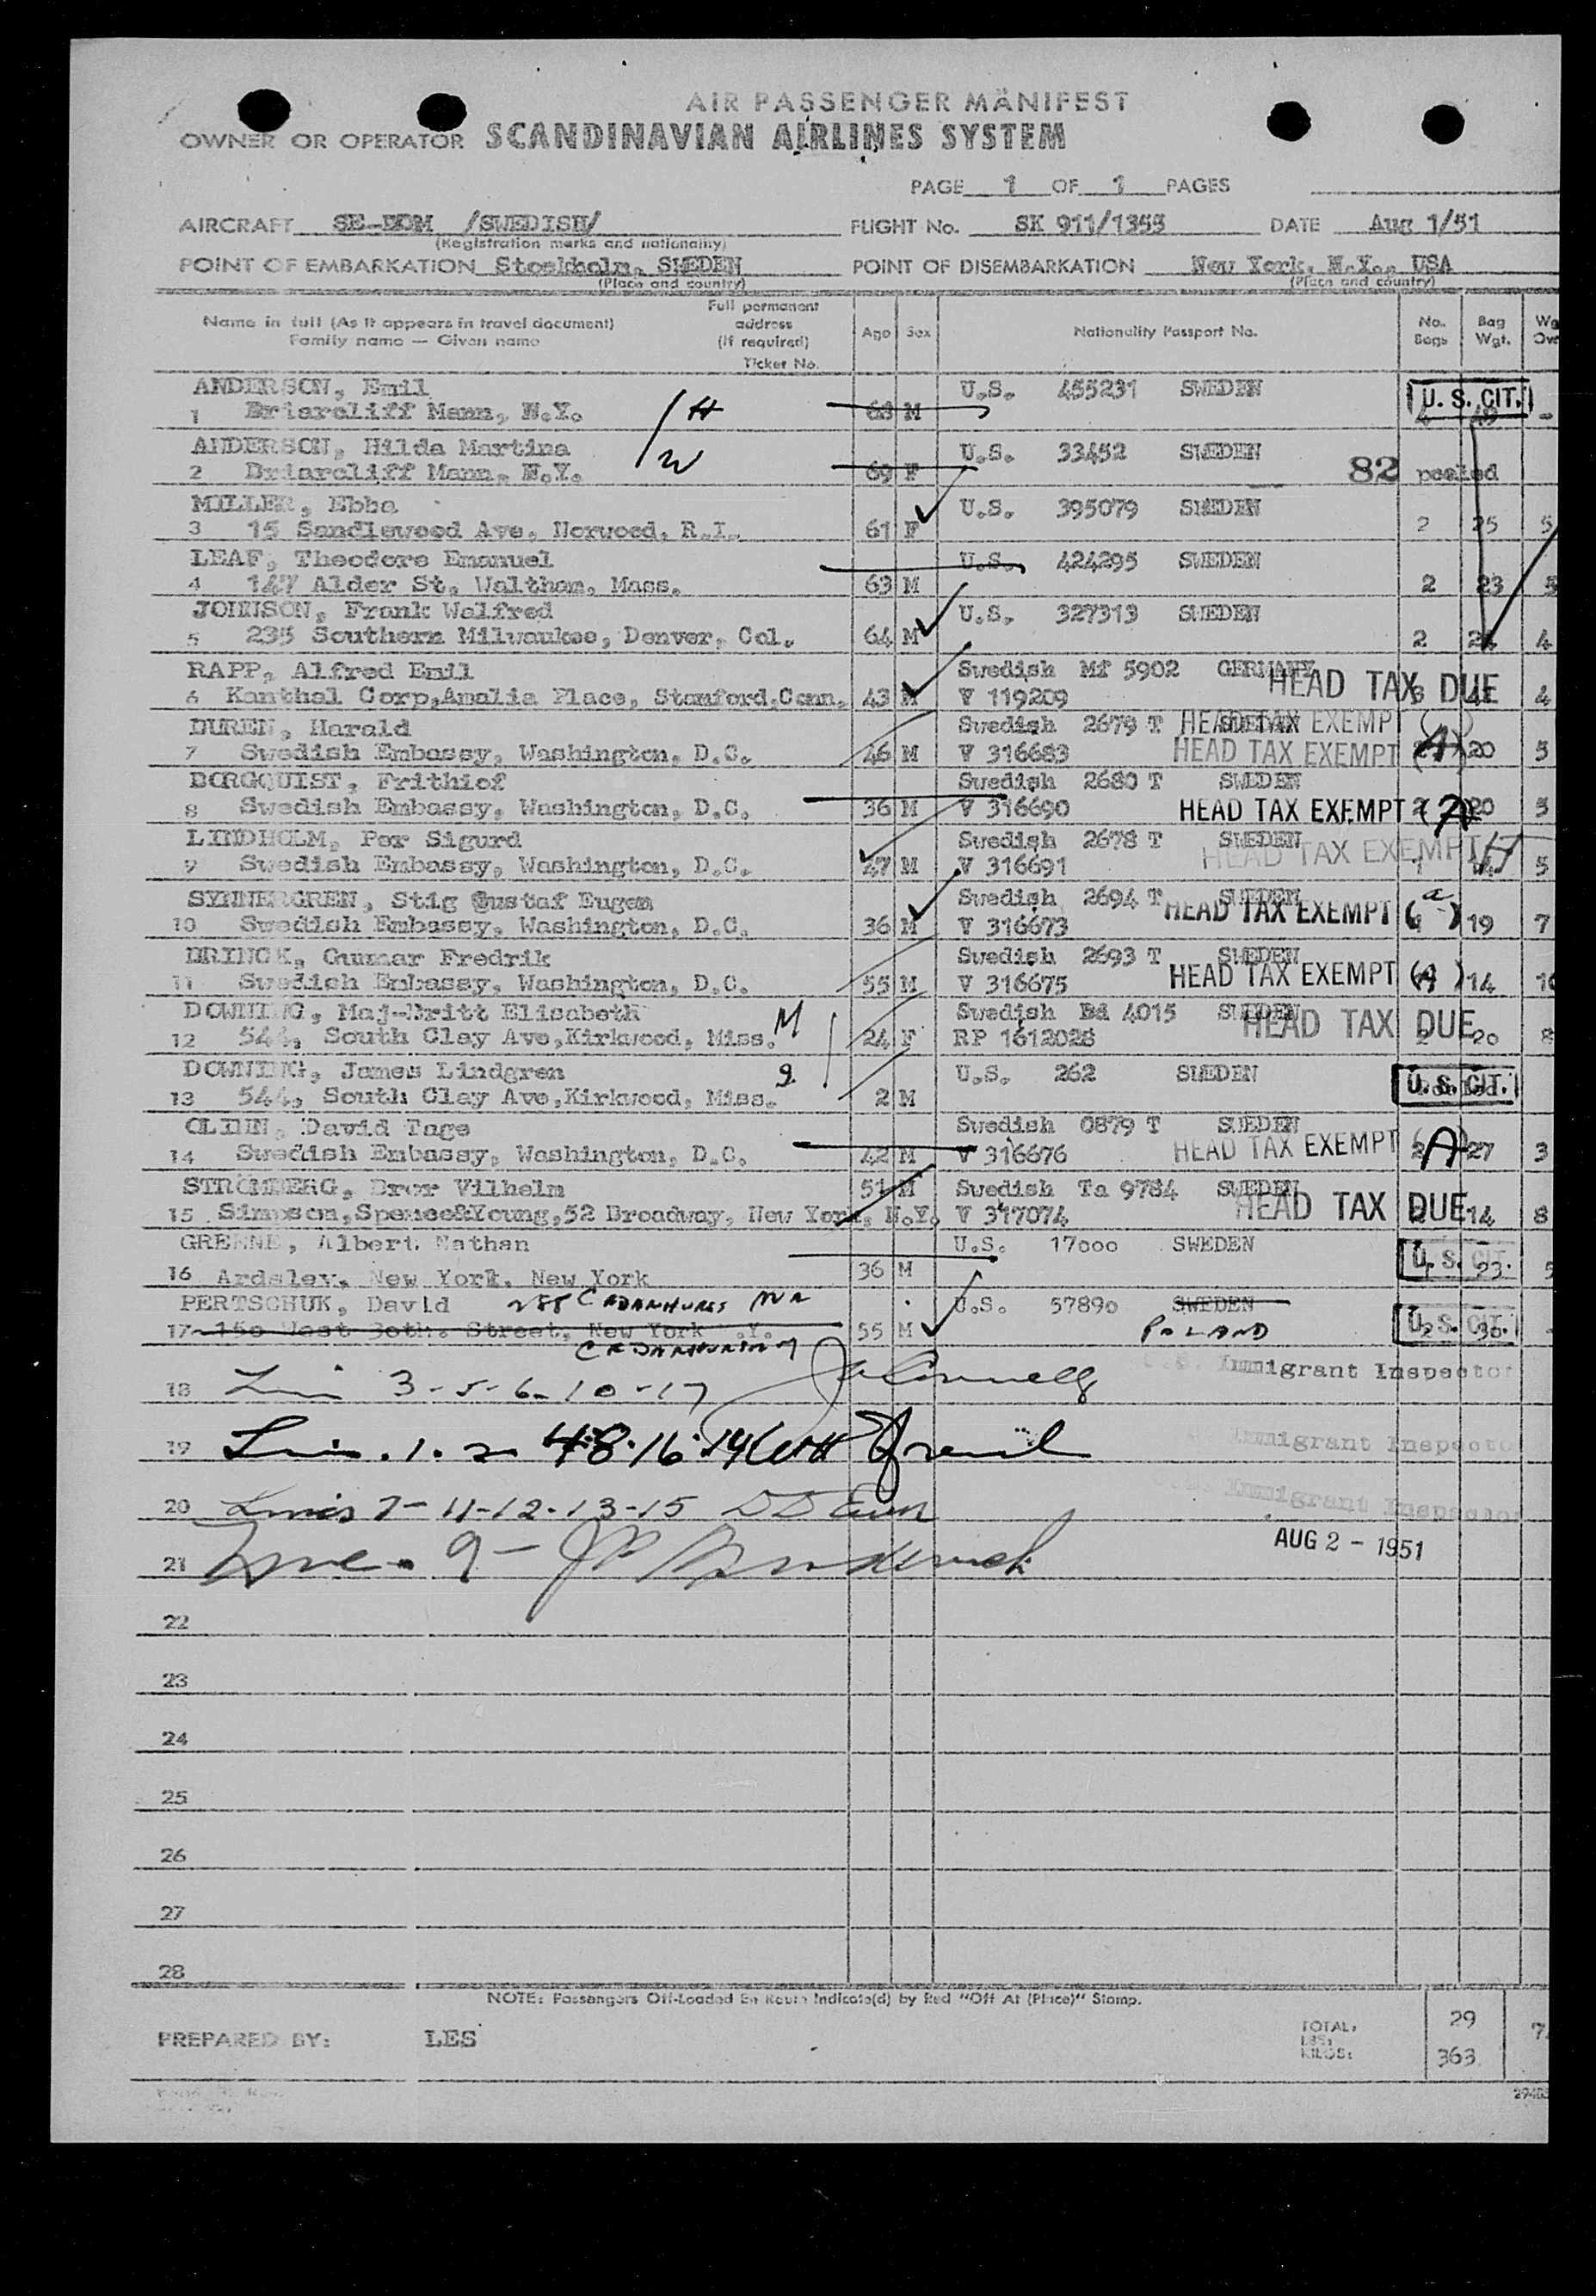 AIR PASSENGER MANIFEST
OWNER OR OPERATOR SCANDINAVIAN AIRLINES SYSTEM
PAGE 1 OF 1 PAGES
AIRCRAFT /SWEDISH/ FLIGHT No. SK 911/1355 DATE Aug 1/51
(Registration marks and nationality)
POINT OF EMBARKATION Stockholm, SWEDEN POINT OF DISEMBARKATION New York, N.Y., USA
(Place and country) (Place and country)
Name in full (As it appears in travel document) Full permanent address (If required) Age Sex Nationality Passport No. No. Bags Bag Wgt.
Family name — Given name Ticket No.
ANDERSON, Emil U.S. 455231 SWEDEN U.S. CIT.
1 Briarcliff Mann, N.Y. H 68 M -
ANDERSON, Hilda Martina U.S. 33452 SWEDEN
2 Briarcliff Mann, N.Y. W 69 F 82 pooled
MILLER, Ebba U.S. 395079 SWEDEN
3 15 Sandlewood Ave, Norwood, R.I. 61 F 2 25 5
LEAF, Theodore Emanuel U.S. 424295 SWEDEN
4 147 Alder St, Waltham, Mass. 63 M 2 23 5
JOHNSON, Frank Walfred U.S. 327313 SWEDEN
5 235 Southern Milwaukee, Denver, Col. 64 M 2 4
RAPP, Alfred Emil Swedish Mf 5902 GERMANY HEAD TAX DUE
6 Kanthal Corp,Amalia Place, Stamford,Conn. 43 M V 119209 4
DUREN, Harald Swedish 2679 T SWEDEN HEAD TAX EXEMPT
7 Swedish Embassy, Washington, D.C. 46 M V 316683 HEAD TAX EXEMPT (A) 20 5
BORGQUIST, Frithiof Swedish 2680 T SWEDEN
8 Swedish Embassy, Washington, D.C. 36 M V 316690 HEAD TAX EXEMPT (A) 20 5
LINDHOLM, Per Sigurd Swedish 2678 T SWEDEN HEAD TAX EXEMPT
9 Swedish Embassy, Washington, D.C. 47 M V 316691 1 5
SYNNERGREN, Stig Gustaf Eugen Swedish 2694 T SWEDEN HEAD TAX EXEMPT (a)
10 Swedish Embassy, Washington, D.C. 36 M V 316673 19 7
BRINCK, Gunnar Fredrik Swedish 2693 T SWEDEN
11 Swedish Embassy, Washington, D.C. 55 M V 316675 HEAD TAX EXEMPT (A) 14
DOWNING, Maj-Britt Elisabeth M Swedish Bd 4015 SWEDEN HEAD TAX DUE
12 544, South Clay Ave,Kirkwood, Miss. 24 F RP 1612028 2 20 8
DOWNING, James Lindgren U.S. 262 SWEDEN U.S. CIT.
13 544, South Clay Ave,Kirkwood, Miss. 2 M
OLINN, David Tage Swedish 0879 T SWEDEN
14 Swedish Embassy, Washington, D.C. 42 M V 316676 HEAD TAX EXEMPT (A) 27 3
STROMBERG, Bror Vilhelm 51 M Swedish Ta 9784 SWEDEN HEAD TAX DUE
15 Simpson,Spence&Young,52 Broadway, New York, N.Y. V 317074 14 8
GREENE, Albert Nathan U.S. 17000 SWEDEN U.S. CIT.
16 Ardsley, New York, New York 36 M 23
PERTSCHUK, David U.S. 57890 SWEDEN
17 150 West 30th. Street, New York .Y. 55 M POLAND U.S. CIT. 30
18 3-5-6-10-17 U.S. Immigrant Inspector
19 1. 2 4.8.16.14 Immigrant Inspector
20 7-11-12-13-15 U.S. Immigrant Inspector
21 9 - AUG 2 - 1951
22
23
24
25
26
27
28
NOTE: Passengers Off-Loaded En Route Indicate(d) by Red "Off At (Place)" Stamp.
PREPARED BY: LES TOTAL: 29
LBS:
KILOS: 363